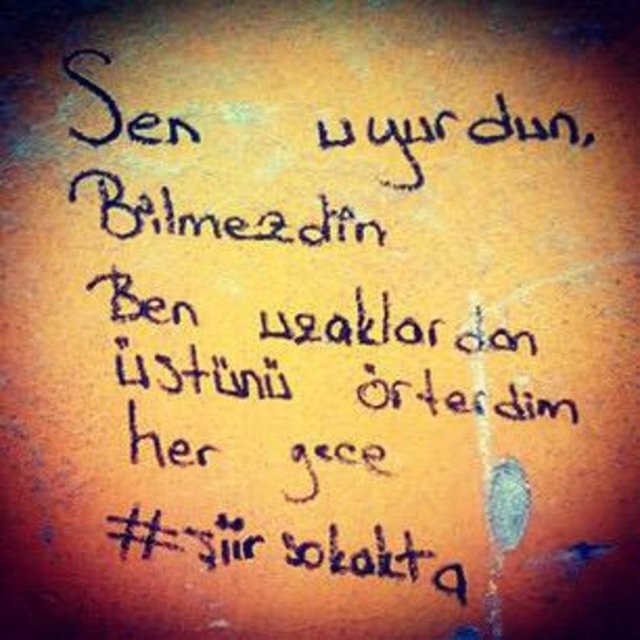 Sen uyurdun,
Bilmezdin
Ben uzaklardan
üstünü örterdim
her gece
#şiirsokakta